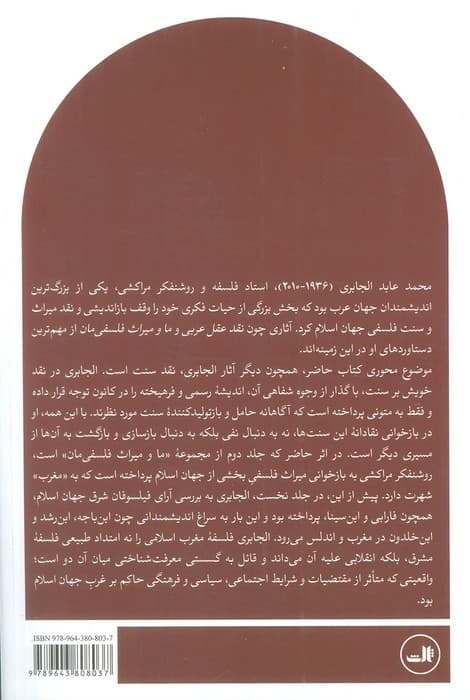 محمد عابد الجابری (۱۹۳۶-۲۰۱۰)، استاد فلسفه و روشنفکر مراکشی، یکی از بزرگ‌ترین
اندیشمندان جهان عرب بود که بخش بزرگی از حیات فکری خود را وقف بازاندیشی و نقد میراث
و سنت فلسفی جهان اسلام کرد. آثاری چون نقد عقل عربی و ما و میراث فلسفی‌مان از مهم‌ترین
دستاوردهای او در این زمینه‌اند.
موضوع محوری کتاب حاضر، همچون دیگر آثار الجابری، نقد سنت است. الجابری در نقد
خویش بر سنت، با گذار از وجوه شفاهی آن، اندیشهٔ رسمی و فرهیخته را در کانون توجه قرار داده
و فقط به متونی پرداخته است که آگاهانه حامل و بازتولیدکنندهٔ سنت مورد نظرند. با این همه، او
در بازخوانی نقادانهٔ این سنت‌ها، نه به دنبال نفی بلکه به دنبال بازسازی و بازگشت به آن‌ها از
مسیری دیگر است. در اثر حاضر که جلد دوم از مجموعهٔ «ما و میراث فلسفی‌مان» است،
روشنفکر مراکشی به بازخوانی میراث فلسفی بخشی از جهان اسلام پرداخته است که به «مغرب»
شهرت دارد. پیش از این، در جلد نخست، الجابری به بررسی آرای فیلسوفان شرق جهان اسلام،
همچون فارابی و ابن‌سینا، پرداخته بود و این بار به سراغ اندیشمندانی چون ابن‌باجه، ابن‌رشد و
ابن‌خلدون در مغرب و اندلس می‌رود. الجابری فلسفهٔ مغرب اسلامی را نه امتداد طبیعی فلسفهٔ
مشرق، بلکه انقلابی علیه آن می‌داند و قائل به گسستی معرفت‌شناختی میان آن دو است؛
واقعیتی که متأثر از مقتضیات و شرایط اجتماعی، سیاسی و فرهنگی حاکم بر غربِ جهان اسلام
بود.
ISBN 978-964-380-803-7
9 789643 808037
ثالث